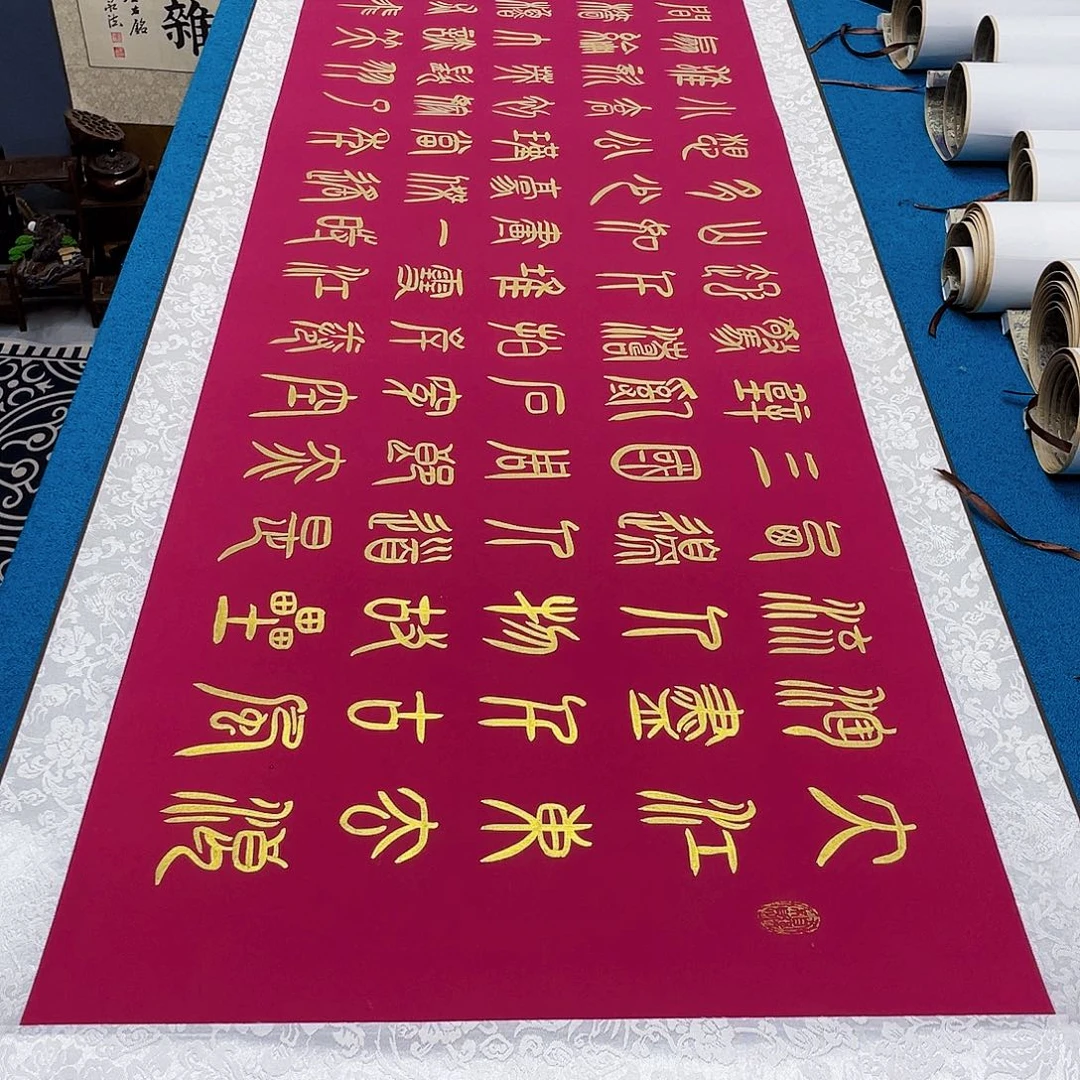 大江東去浪
淘盡千古風
流人物故壘
西邊人道是
三國周郎赤
壁亂石穿空
驚濤拍岸捲
起千堆雪江
山如畫一時
多少豪傑遙
想公瑾當年
小喬初嫁了
雄姿英發羽
扇綸巾談笑
間檣櫓灰飛
雜